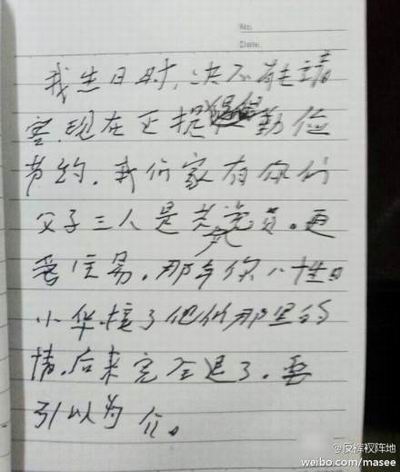 No.
Date.
我生日时,决不能请
客.现在正提倡勤俭
节约.我们家有你们
父子三人是共党员.更
要注意.那年你 性
小华接了他们那里的
情.后来完全退了.要
引以为
@反裤衩阵地
weibo.com/masee